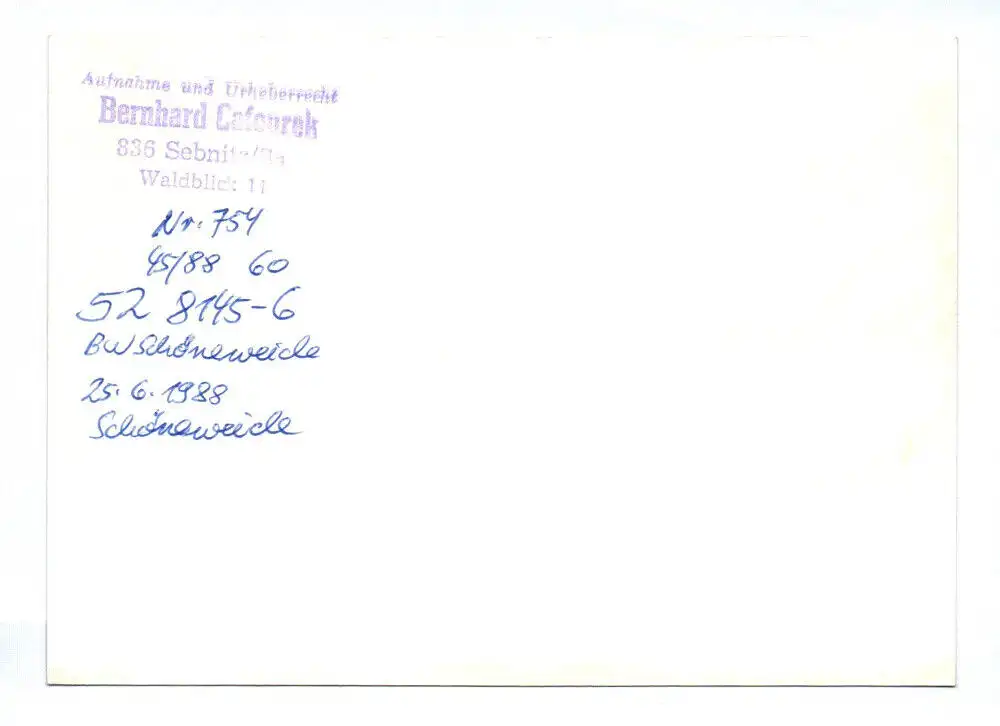 Aufnahme und Urheberrecht
Bernhard
836
Waldblick 11
Nr. 754
45/88 60
52 8145-6
BW Schöneweide
25.6.1988
Schöneweide